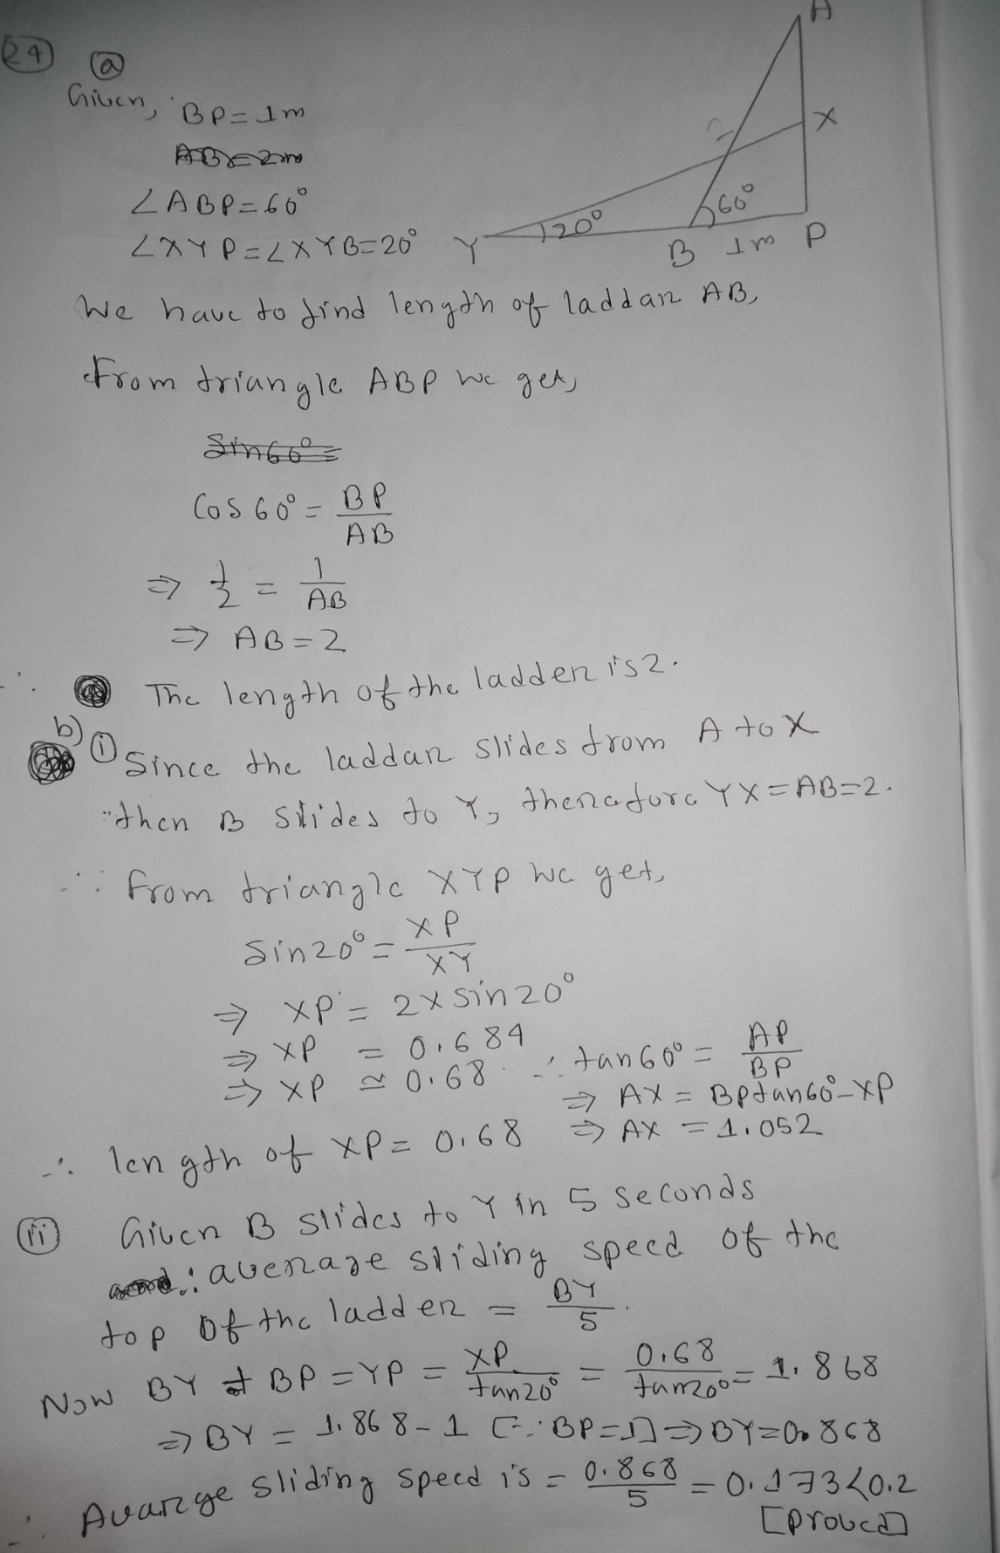 24
(a)
Given, BP = 1m
AB = 2m
∠ABP = 60°
∠XYP = ∠XYB = 20°
A
X
2
20°
60°
Y
B 1m P
We have to find length of laddar AB,
From triangle ABP we get,
Sin60° =
Cos 60° = BP/AB
⇒ 1/2 = 1/AB
⇒ AB = 2
∴ The length of the ladder is 2.
b) (i) Since the laddar slides from A to X
then B slides to Y, therefore YX = AB = 2.
∴ From triangle XYP we get,
Sin20° = XP/XY
⇒ XP = 2 × sin20°
⇒ XP = 0.684
⇒ XP ≃ 0.68
∴ tan60° = AP/BP
⇒ AX = BPtan60° - XP
⇒ AX = 1.052
∴ length of XP = 0.68
(ii) Given B slides to Y in 5 seconds
∴ average sliding speed of the
top of the ladder = BY/5.
Now BY + BP = YP = XP/tan20° = 0.68/tan20° = 1.868
⇒ BY = 1.868 - 1 [∵ BP = 1] ⇒ BY = 0.868
∴ Avarge sliding speed is = 0.868/5 = 0.173 < 0.2
[proved]